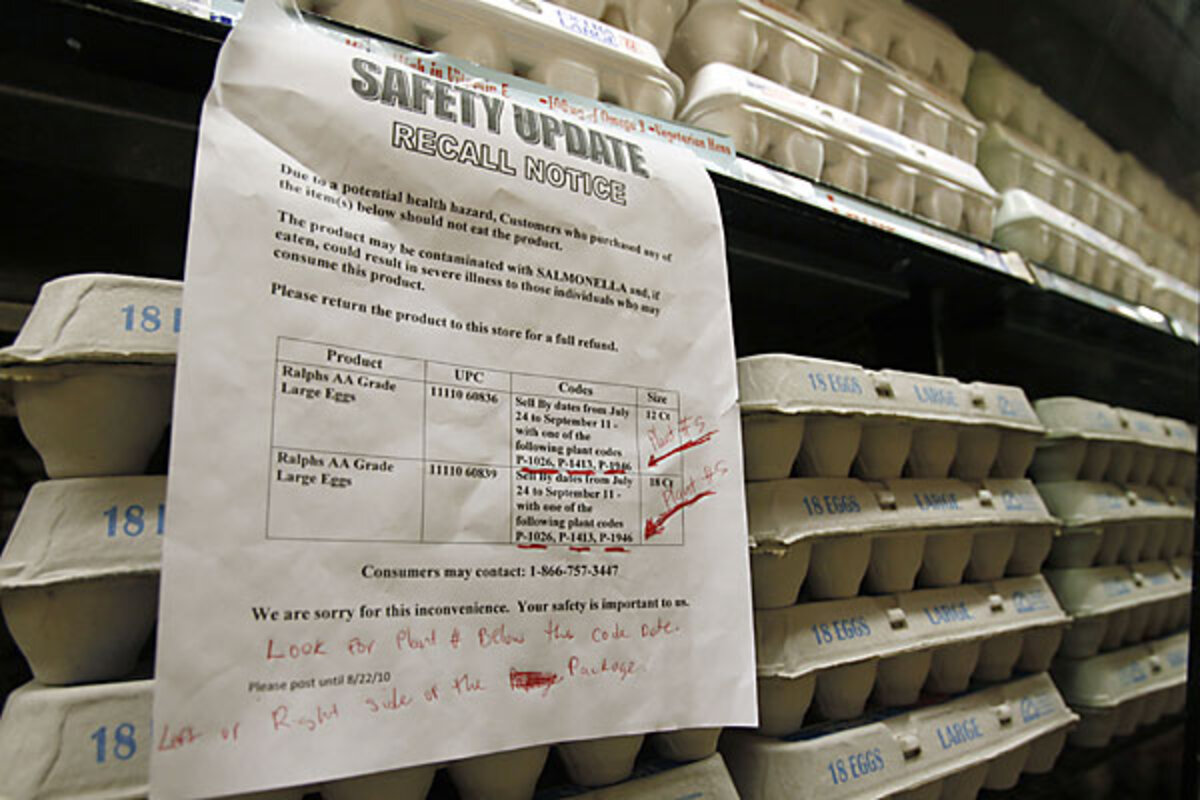 High in Vitamin E •100mg of Omega 3 •Vegetarian Hens
SAFETY UPDATE
RECALL NOTICE
Due to a potential health hazard, Customers who purchased any of
the item(s) below should not eat the product.
The product may be contaminated with SALMONELLA and, if
eaten, could result in severe illness to those individuals who may
consume this product.
Please return the product to this store for a full refund.
Product UPC Codes Size
Ralphs AA Grade
Large Eggs
11110 60836
Sell By dates from July
24 to September 11 -
with one of the
following plant codes
P-1026, P-1413, P-1946
12 Ct
Plant #'s
Ralphs AA Grade
Large Eggs
11110 60839
Sell By dates from July
24 to September 11 -
with one of the
following plant codes
P-1026, P-1413, P-1946
18 Ct
Plant #'s
Consumers may contact: 1-866-757-3447
We are sorry for this inconvenience. Your safety is important to us.
Look For Plant # Below the Code Date.
Please post until 8/22/10
Left or Right side of the Package.
18
18
18
18 EGGS LARGE
18 EGGS LARGE
18 EGGS LARGE
18 EGGS LARGE